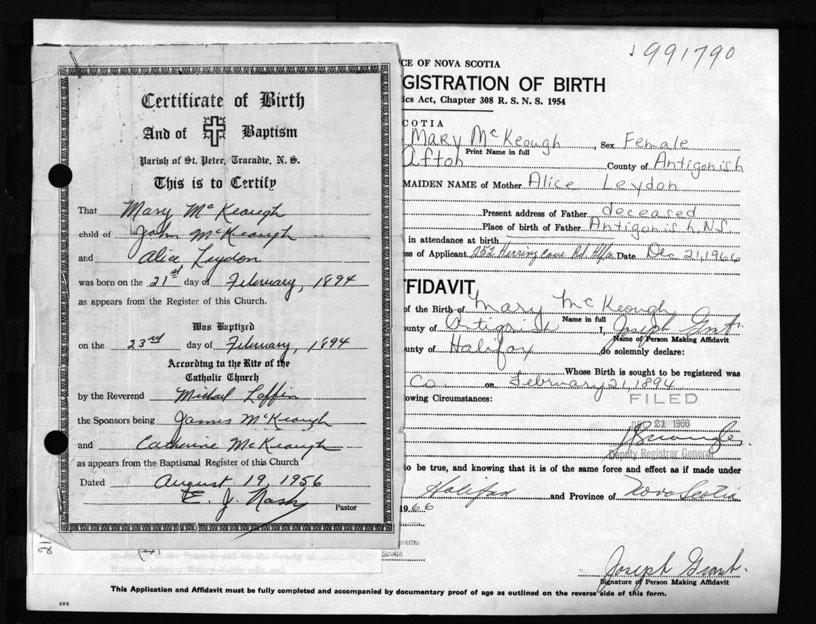 Certificate of Birth
And of Baptism
Parish of St. Peter, Tracadie, N. S.
This is to Certify
That Mary McKeough
child of John McKeough
and Alice Leydon
was born on the 21st day of February, 1894
as appears from the Register of this Church.
Was Baptized
on the 23rd day of February, 1894
According to the Rite of the
Catholic Church
by the Reverend Michael Laffin
the Sponsors being James McKeough
and Catherine McKeough
as appears from the Baptismal Register of this Church
Dated August 19, 1956
E. J. Nash
Pastor
991790
CE OF NOVA SCOTIA
GISTRATION OF BIRTH
ics Act, Chapter 308 R. S. N. S. 1954
COTIA
Mary McKeough, Sex Female
Print Name in full
Afton County of Antigonish
MAIDEN NAME of Mother Alice Leydon
Present address of Father deceased
Place of birth of Father Antigonish, N.S.
in attendance at birth
ss of Applicant 252 Herring Cove Rd. Hfx. Date Dec 21, 1966
FFIDAVIT
of the Birth of Mary McKeough
Name in full
ounty of Antigonish I, Joseph Grant
Name of Person Making Affidavit
ounty of Halifax do solemnly declare:
Whose Birth is sought to be registered was
Co. on February 21, 1894
owing Circumstances:
FILED
21 1966
Deputy Registrar General
to be true, and knowing that it is of the same force and effect as if made under
Halifax and Province of Nova Scotia
1966
Joseph Grant
Signature of Person Making Affidavit
This Application and Affidavit must be fully completed and accompanied by documentary proof of age as outlined on the reverse side of this form.